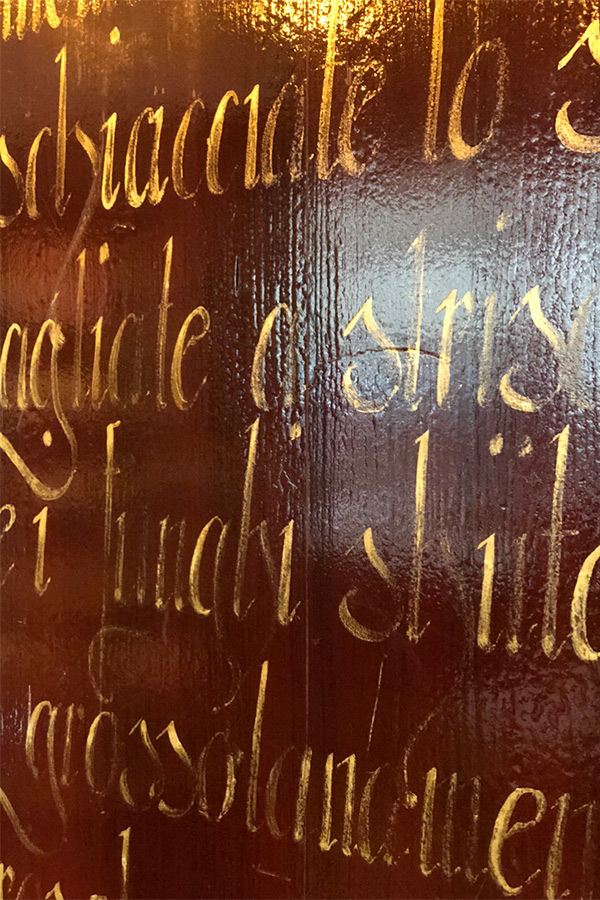 schiacciate lo s
agliate a stris
ei funghi
grossolanamen